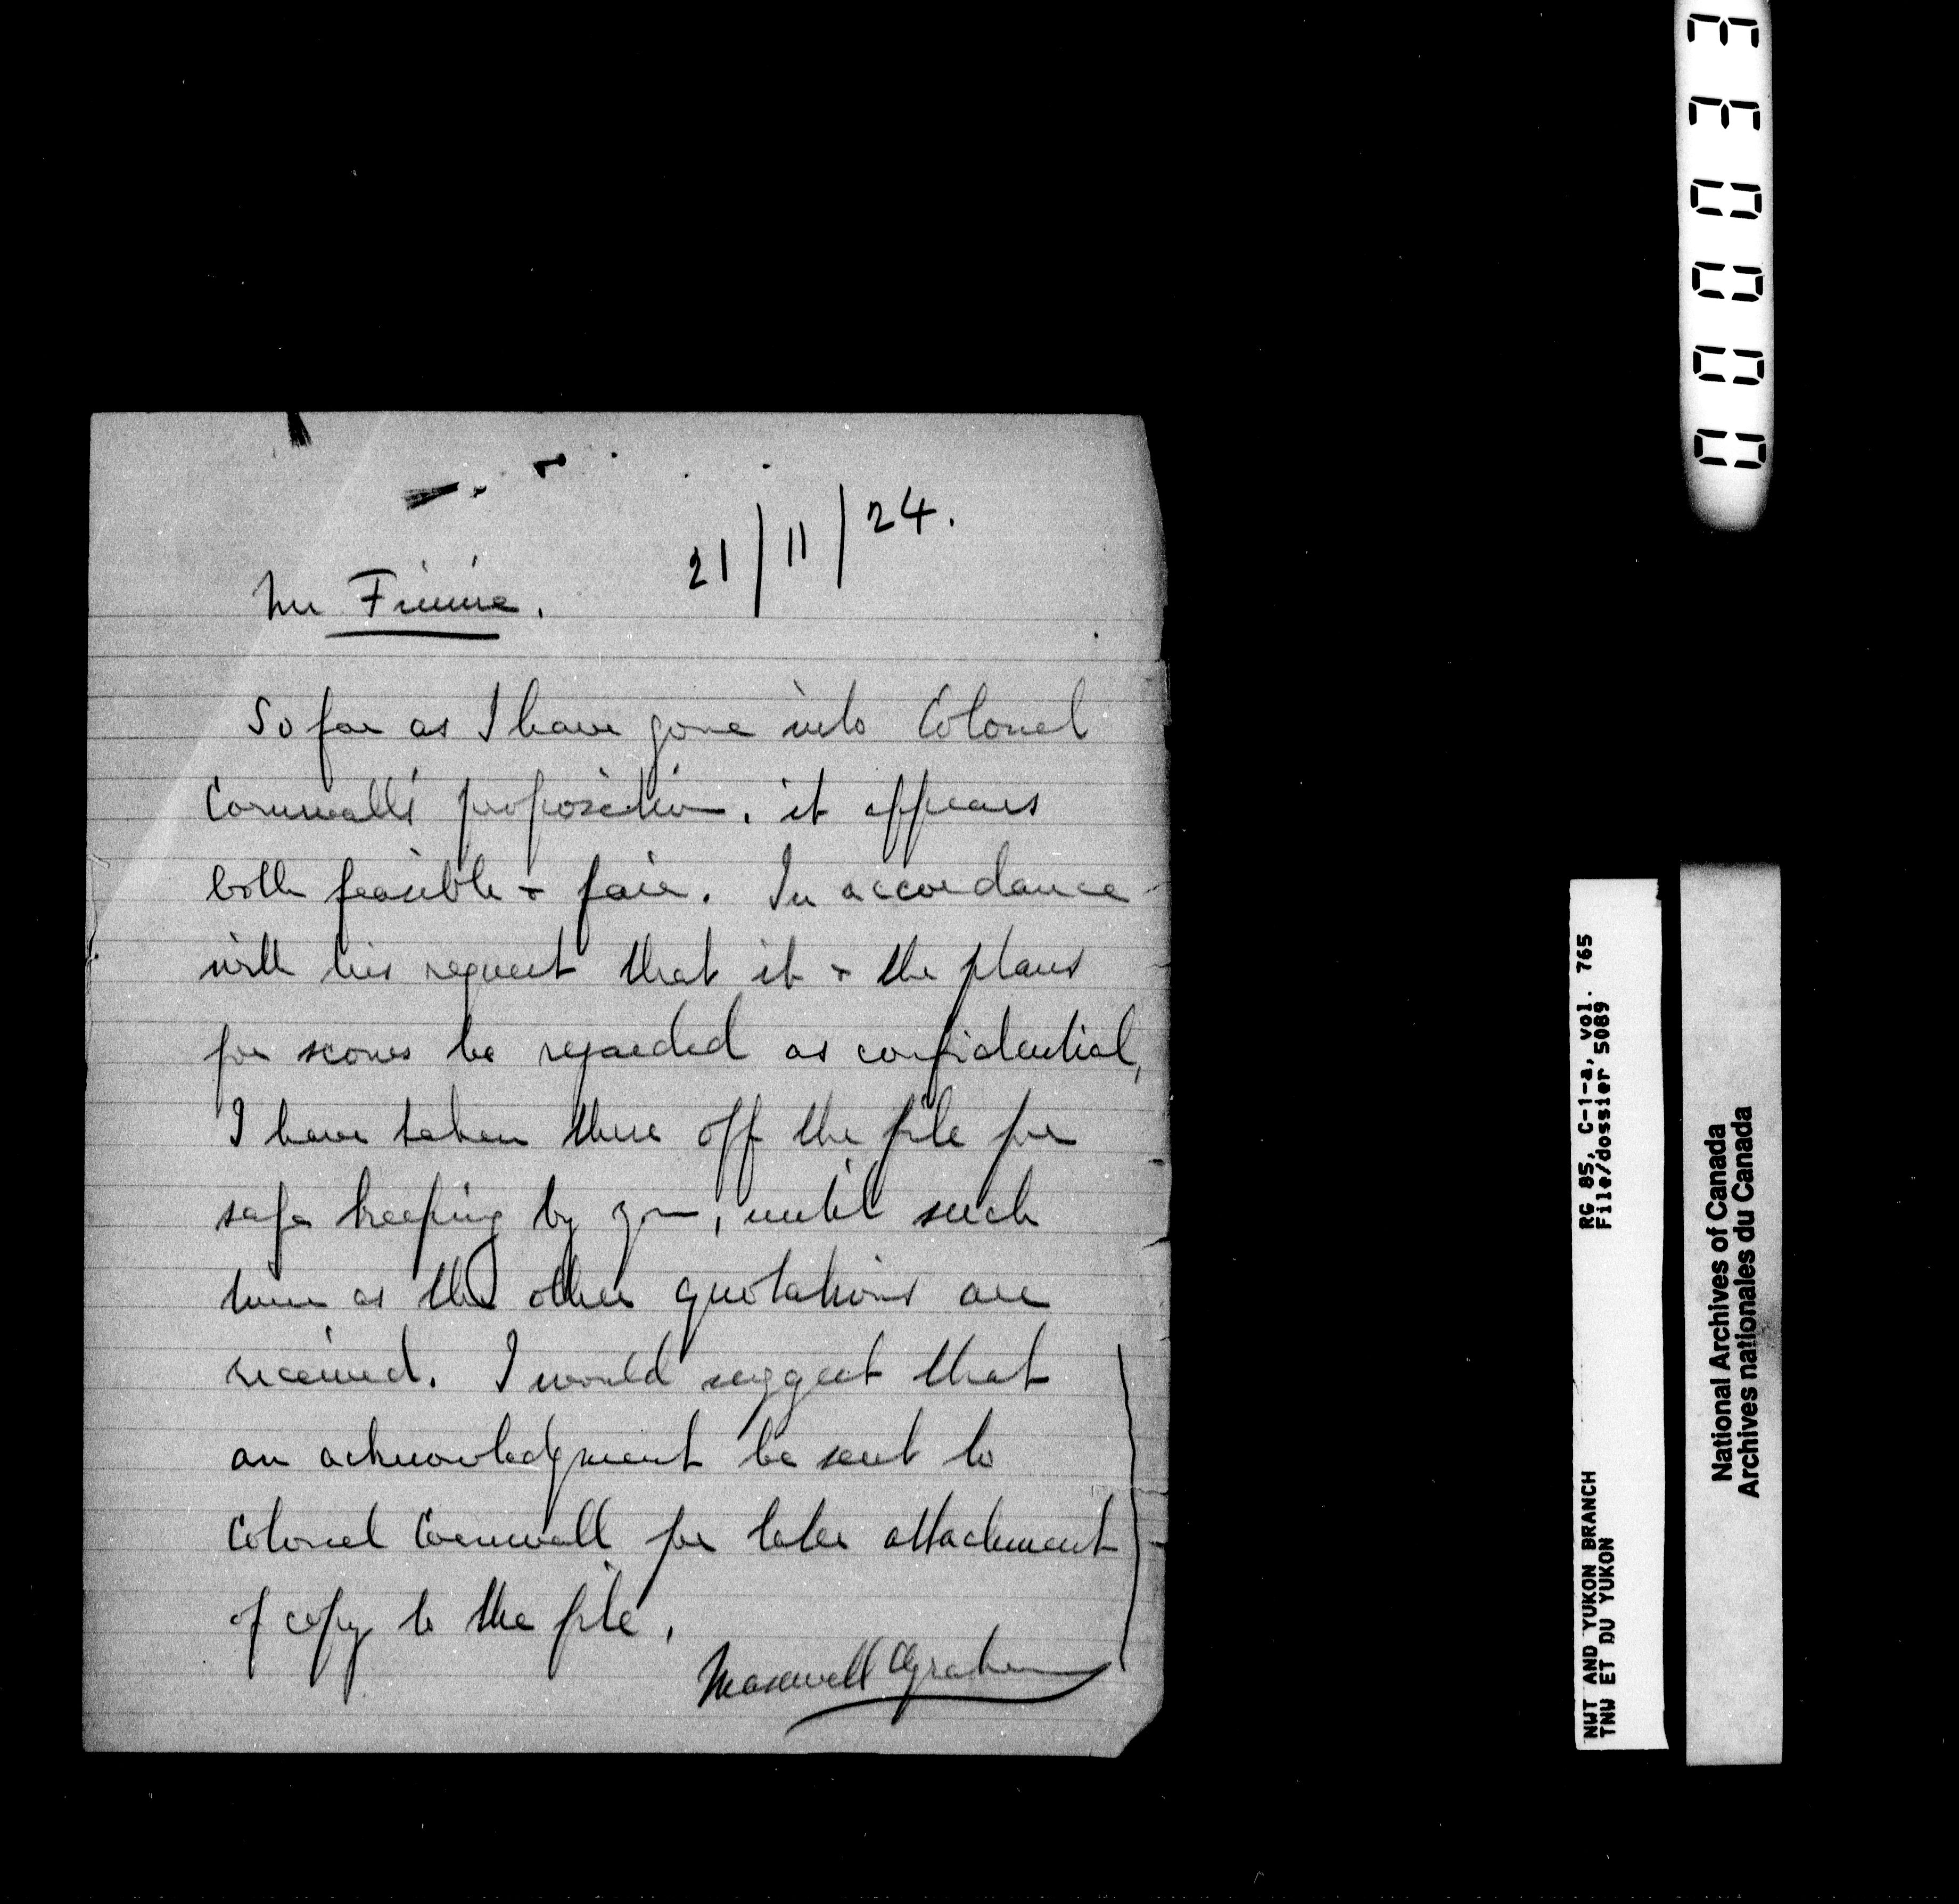 21/11/24.
Mr Finnie.
So far as I have gone into Colonel
Cornwall's proposition, it appears
both feasible & fair. In accordance
with his request that it & the plans
for scows be regarded as confidential,
I have taken these off the file for
safe keeping by you, until such
time as the other quotations are
received. I would suggest that
an acknowledgment be sent to
Colonel Cornwall for later attachment
of copy to the file.
Maxwell Graham
000033
RG 85, C-1-a, vol. 765
File/dossier 5089
NWT AND YUKON BRANCH
TNW ET DU YUKON
National Archives of Canada
Archives nationales du Canada